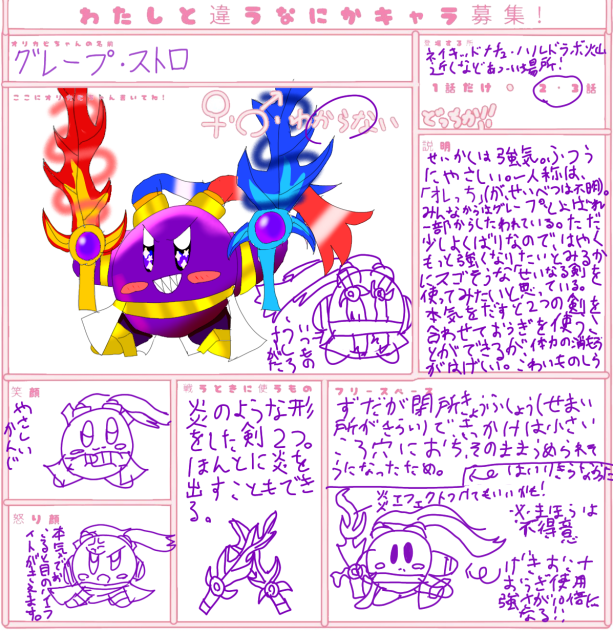 わたしと違うなにかキャラ募集!
オリカビちゃんの名前
グレープ・ストロ
ネイキッドナチュ・ハルドラボ火山
近くなどあつーい場所!
1話だけ○ 2・3話
どっちか!!
ここにオリ
書いてね!
♀・♂・わからない
いつもの
説明
せいかくは強気。ふつう
にやさしい。一人称は、
「オレっち」(がせいべつは不明)。
みんなからはグレープとよばれ
一部からしたわれている。ただ
少しよくばりなのではやく
もっと強くなりたいとみるか
にスゴそうな せいなる剣を
使ってみたいと思っている。
本気をだすと2つの剣を
合わせておうぎを使うこ
とができるが体力の消もう
がはげしい。こわいものしら
笑顔
やさしい
かんじ
怒り顔
本気でおこ
ると目のハイラ
イトがきえます。
戦うときに使うもの
炎のような形
をした剣2つ。
ほんとに炎を
出すこともでき
る。
フリースペース
ずだが閉所きょうふしょう(せまい
所がきらい)で、きっかけは小さい
ころ穴におち、そのままうめられそ
うになったため。
炎エフェクトつけてもいいかも!
※まほうは
不得意
げきおこナ
おうぎ使用
強さが10倍に
なる!!